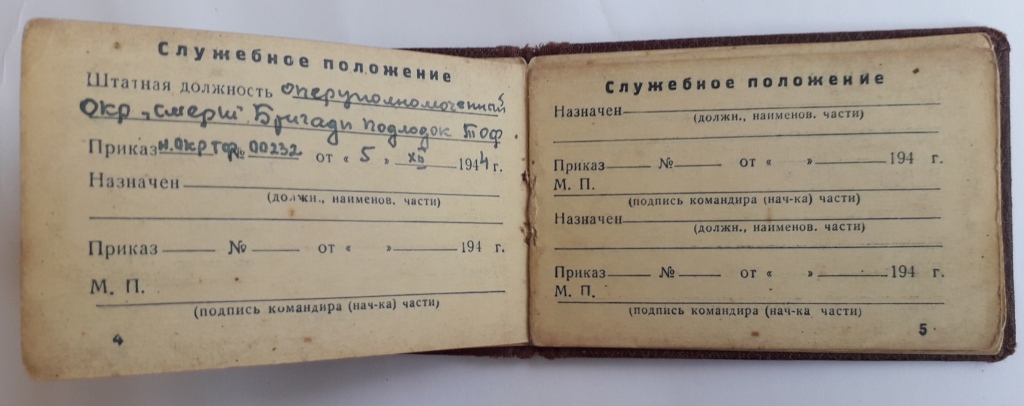 Служебное положение
Штатная должность оперуполномоченный
Окр „Смерш" Бригади подлодок ТОФ
Приказ Н.ОКР ТОФ № 00232 от « 5 » XII 1944 г.
Назначен
(должн., наименов. части)
Приказ № от « » 194 г.
М. П.
(подпись командира (нач-ка) части)
4
Служебное положение
Назначен
(должн., наименов. части)
Приказ № от « » 194 г.
М. П.
(подпись командира (нач-ка) части)
Назначен
(должн., наименов. части)
Приказ № от « » 194 г.
М. П.
(подпись командира (нач-ка части)
5